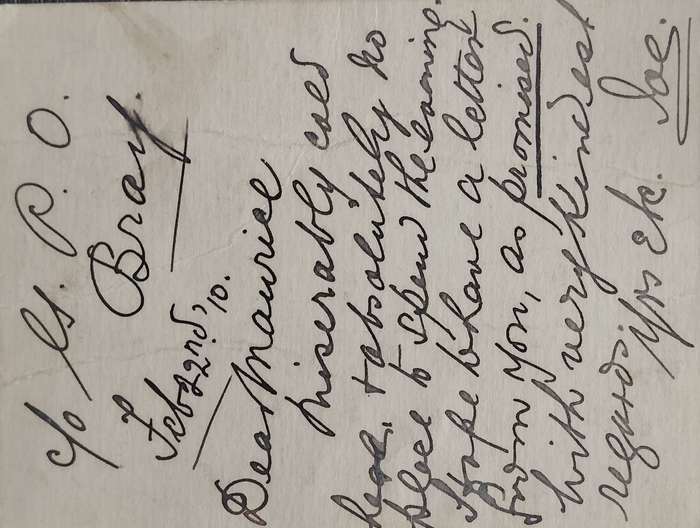 c/o G. P. O.
Bray.
Feb 22nd, 10.
Dear Maurice
Miserably cold
here, & absolutely no
place to spend the evening.
Hope to have a letter
from you, as promised.
With very kindest
regards.
Yrs etc. Joe.